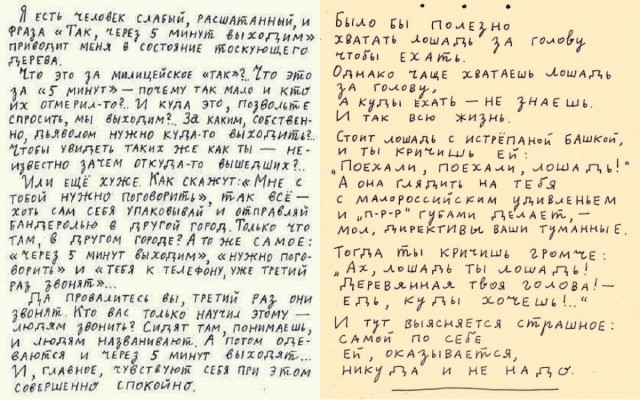 Я есть человек слабый, расшатанный, и
фраза «Так, через 5 минут выходим»
приводит меня в состояние тоскующего
дерева.
Что это за милицейское «так»?.. Что это
за «5 минут» — почему так мало и кто
их отмерил-то?.. И куда это, позвольте
спросить, мы выходим?.. За каким, собствен-
но, дьяволом нужно куда-то выходить?..
Чтобы увидеть таких же как ты — не-
известно зачем откуда-то вышедших?..
Или ещё хуже. Как скажут: «Мне с
тобой нужно поговорить», так всё —
хоть сам себя упаковывай и отправляй
бандеролью в другой город. Только что
там, в другом городе? А то же самое:
«через 5 минут выходим», «нужно пого-
ворить» и «тебя к телефону, уже третий
раз звонят»...
Да провалитесь вы, третий раз они
звонят. Кто вас только научил этому —
людям звонить? Сидят там, понимаешь,
и людям названивают. А потом оде-
ваются и через 5 минут выходят...
И, главное, чувствуют себя при этом
совершенно спокойно.
Было бы полезно
хватать лошадь за голову
чтобы ехать.
Однако чаще хватаешь лошадь
за голову,
а куды ехать — не знаешь.
И так всю жизнь.
Стоит лошадь с истрёпаной башкой,
и ты кричишь ей:
„Поехали, поехали, лошадь!"
А она глядить на тебя
с малороссийским удивленьем
и „п-р-р" губами делает, —
мол, директивы ваши туманные.
Тогда ты кричишь громче:
„Ах, лошадь ты лошадь!
Деревянная твоя голова! —
Едь, куды хочешь!.."
И тут выясняется страшное:
самой по себе
ей, оказывается,
никуда и не надо.